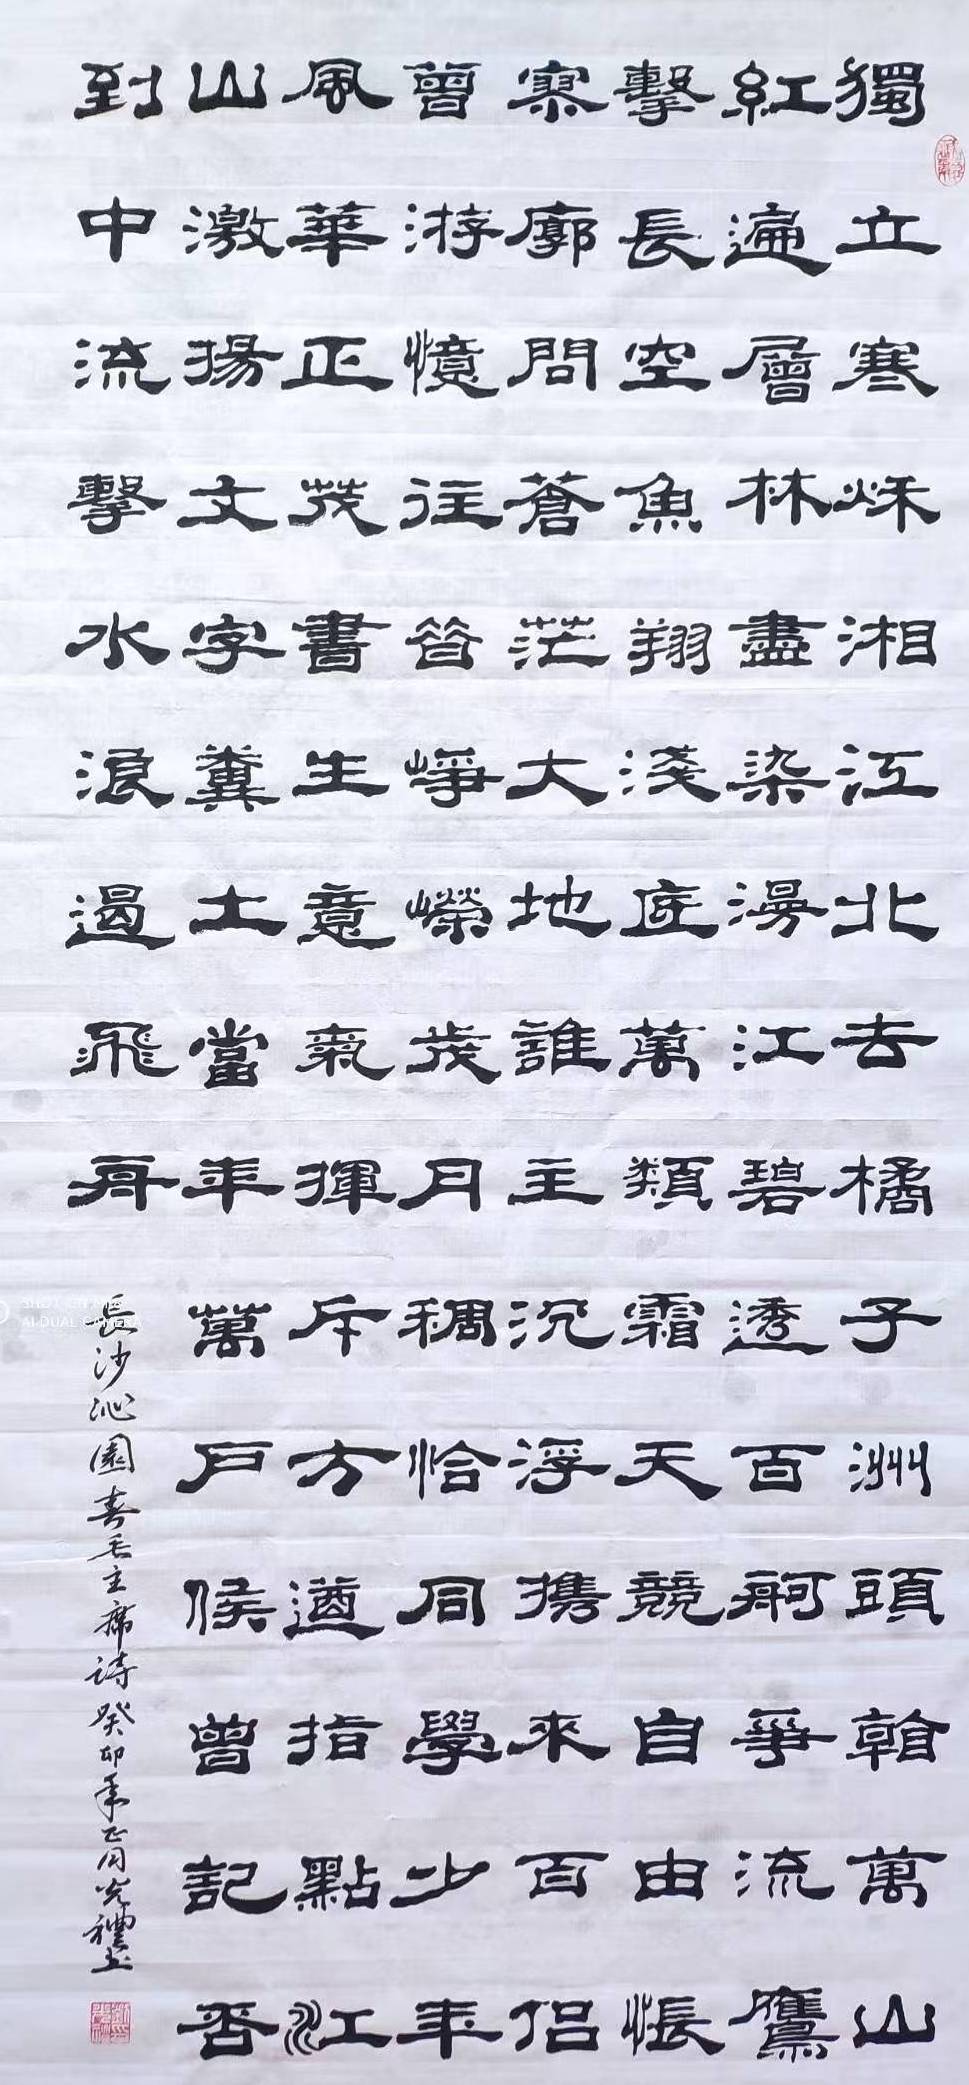 獨立寒秌湘江北去橘子洲頭看萬山
紅遍層林盡染漫江碧透百舸爭流鷹
擊長空魚翔淺底萬類霜天競自由悵
寥廓問蒼茫大地誰主沉浮携來百侶
曾游憶往昔崢嶸歲月稠恰同學少年
風華正茂書生意氣揮斥方遒指點江
山激揚文字糞土當年萬戶侯曾記否
到中流擊水浪遏飛舟
長沙沁園春毛主席詩癸卯年正月光禮书
SHOT ON
AI DUAL CAMERA